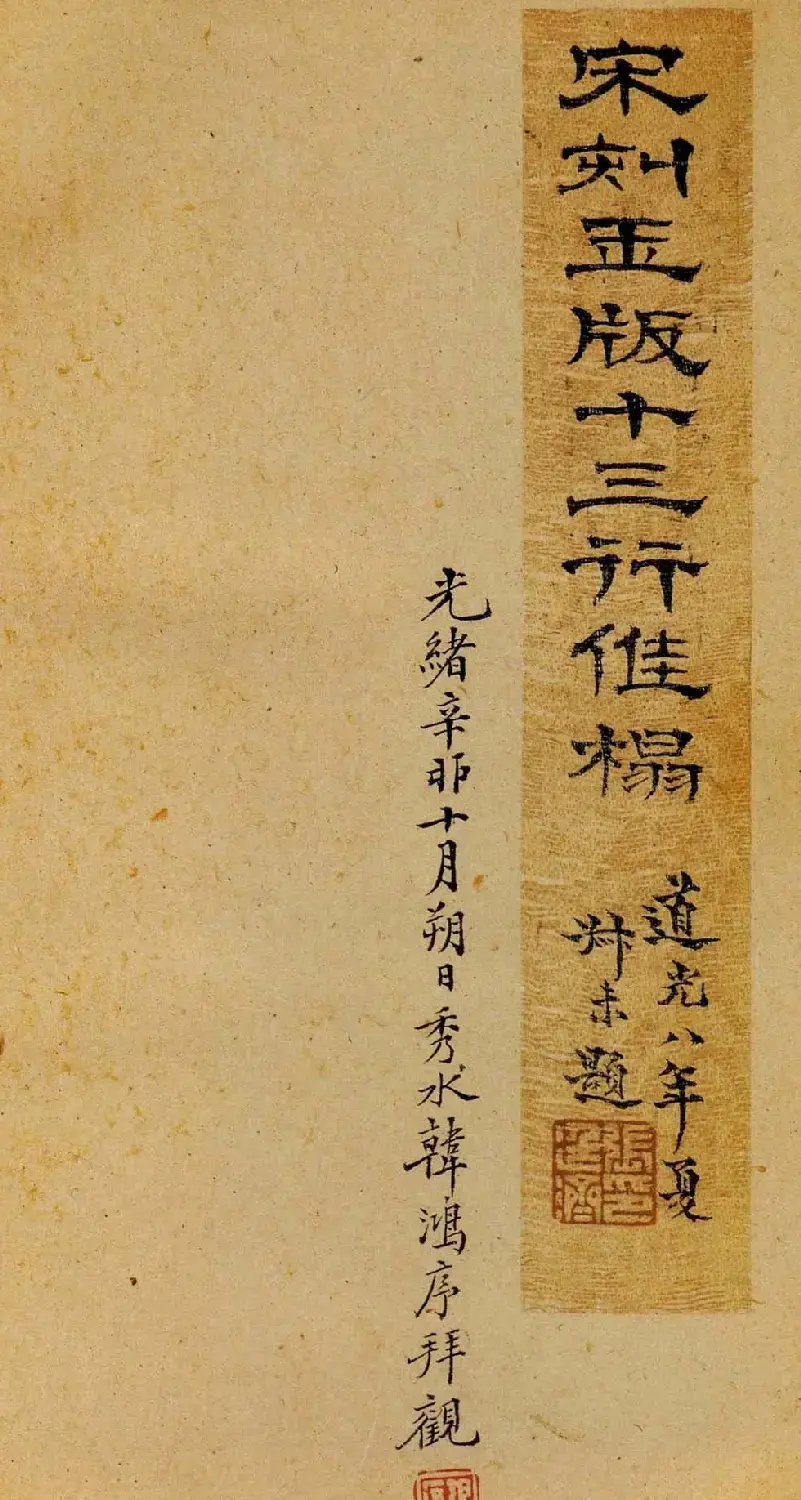 宋刻玉版十三行佳榻
道光八年夏
叔未題
光緒辛卯十月朔日秀水韓鴻序拜觀